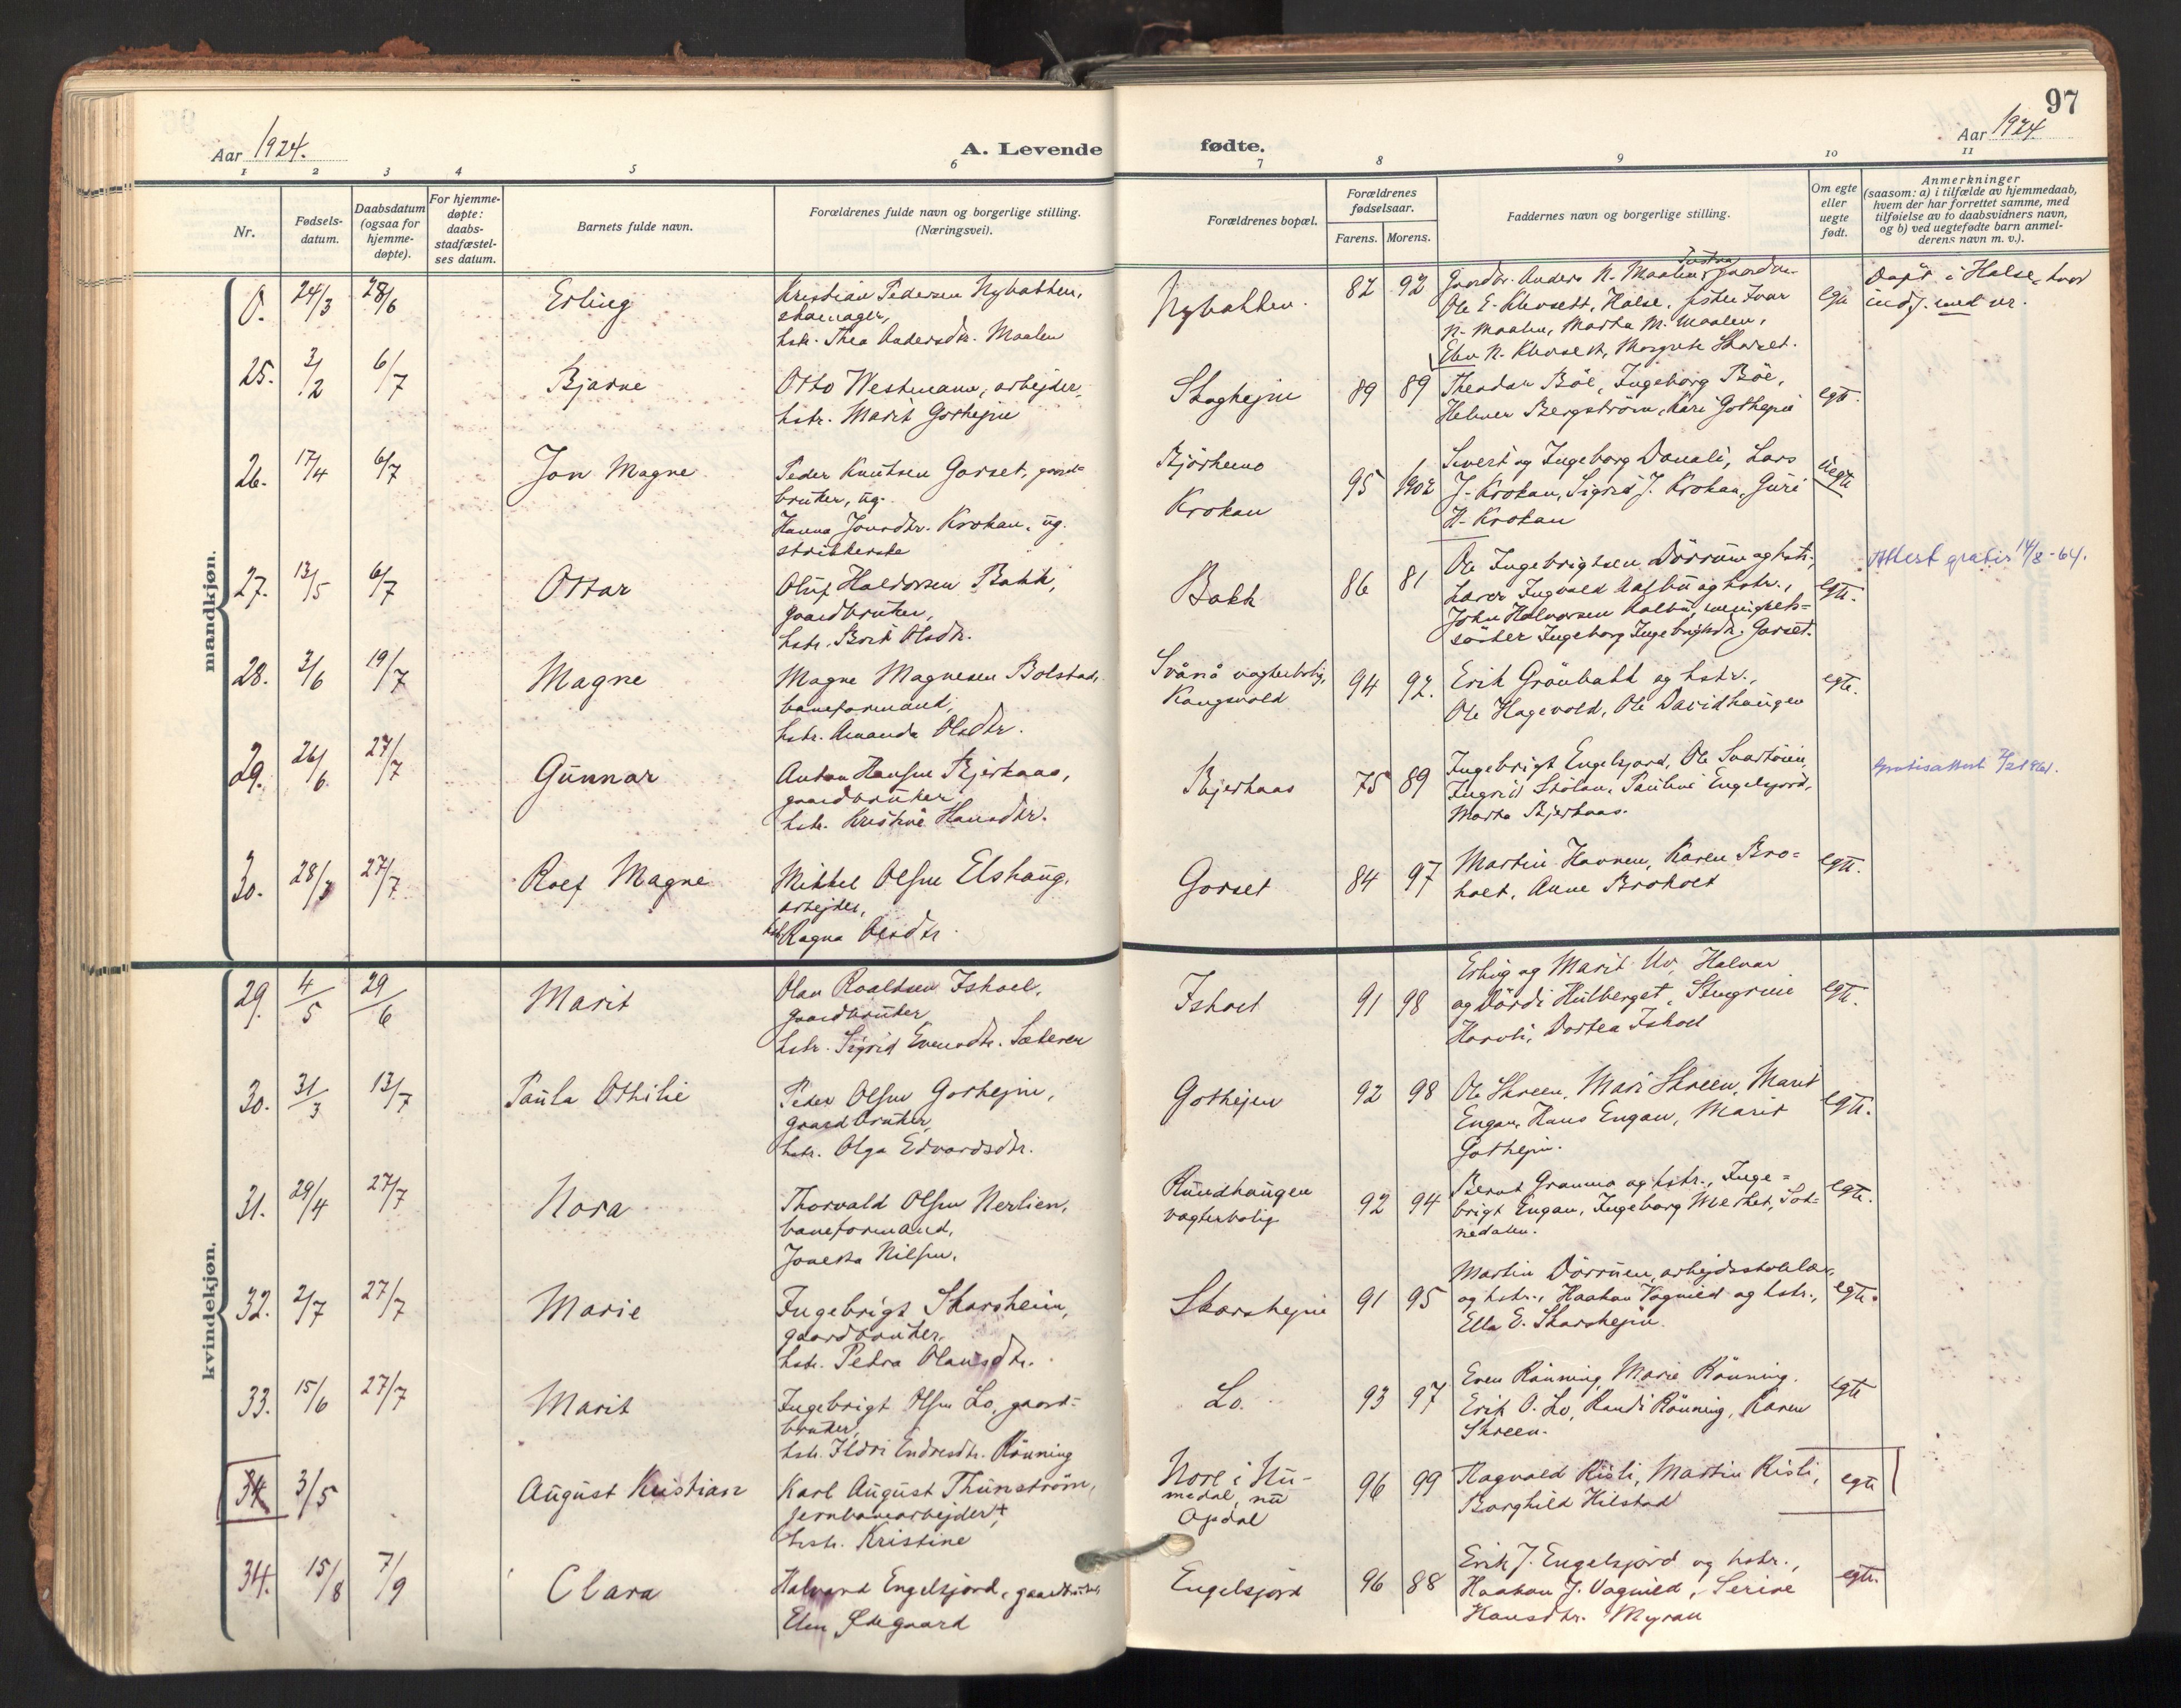 97
Aar 1924.
A. Levende
fødte.
Aar 1924
1 2 3 4 5 6 7 8 9 10 11
Nr.
Fødsels-
datum.
Daabsdatum
(ogsaa for
hjemme-
døpte).
For hjemme-
døpte:
daabs-
stadfæstel-
ses datum.
Barnets fulde navn.
Forældrenes fulde navn og borgerlige stilling.
(Næringsvei).
Forældrenes bopæl.
Forældrenes
fødselsaar.
Farens. Morens.
Faddernes navn og stilling.
Om egte
eller
uegte
født.
Anmerkninger
(saasom: a) i tilfælde av hjemmedaab,
hvem der har forrettet samme, med
tilføielse av to daabsvidners navn,
og b) ved uegtefødte barn anmel-
derens navn m. v.).
mandkjøn.
0. 24/3 28/6 Erling
Kristian Pedersen Nybakken,
skomager,
hstr. Thea Andersdtr. Maalen
Nybakken. 82 92
Gaardbr. Anders N. Maalen,
Ole E. Klevsett, Halse, Ivar
N. Maalen, Marta M. Maalen,
Elen N. Klevsett, Margrete
egte
Døpt i Halse, hvor
indf. med nr.
25. 3/2 6/7 Bjarne
Otto Westmann, arbejder,
hstr. Marit Gorhejm
Skoghejm 89 89
Theodor Böe, Ingeborg Böe,
Helmer Bergström, Kari Gothejm
egte.
26. 17/4 6/7 Jon Magne
Peder Knutsen Gorset, gaard=
bruker, ug.
Hanna Jonsdtr. Krokan, ug.
strikkerske
Bjørkemo
Krokan
95 1902
Sivert og Ingeborg Donali, Lars
J. Krokan, Sigrid J. Krokan, Guri
H. Krokan
Uegte
27. 13/5 6/7 Ottar
Oluf Haldorsen Bakk,
gaardbruker,
hstr. Brit Olsdtr.
Bakk 86 81
Ole Ingebrigtsen Dörrum og hstr.,
Lærer Ingvald Aalbu og hstr.,
John Halvorsen Aalbu, menighets=
søster Ingeborg Ingebrigtsdtr. Gorset.
egte.
Attest gratis 14/8-64.
28. 3/6 19/7 Magne
Magne Magnesen Bolstad,
baneformand,
hstr. Amanda Olsdtr.
Svånå vogterbolig,
Kongsvold
94 92.
Erik Grönbakk og hstr.,
Ole Hagevold, Ole Davidhaugen
egte.
29. 26/6 27/7 Gunnar
Anton Hansen Bjerkaas,
gaardbruker
hstr. Kristine Hansdtr.
Bjerkaas 75 89
Ingebrigt Engelsjord, Ole Svartöien,
Ingrid Stölan, Pauline Engelsjord,
Marta Bjerkaas.
Gratisattest
30. 28/3 27/7 Rolf Magne
Mikkel Olsen Elshaug,
arbejder,
hstr. Ragna Olsdtr.
Gorset 84 97
Martin Havnen, Karen Bro=
holt, Anne Broholt
egte.
kvindekjøn.
29. 4/5 29/6 Marit
Olav Roaldsen Ishoel,
gaardbruker
hstr. Sigrid Evensdtr. Sæteren
Ishoel 91 98
Erling og Marit Uv, Halvar
og Dördi Hulberget, Stengrim
Horvli, Dortea Ishoel
egte.
30. 31/3 13/7 Paula Othilie
Peder Olsen Gothejm,
gaardbruker,
hstr. Olga Edvardsdtr.
Gothejm 92 98
Ole Skreen, Mari Skreen, Marit
Engan, Hans Engan, Marit
Gothejm.
egte.
31. 29/4 27/7 Nora
Thorvald Olsen Nerlien,
baneformand,
Jonetta Nilsen.
Rundhaugen
vogterbolig
92 94
Bernt Granmo og hstr., Inge=
brigt Engan, Ingeborg Merket, Sok=
nedalen.
egte.
32. 2/7 27/7 Marie
Ingebrigt Skarsheim,
gaardbruker,
hstr. Petra Olausdtr.
Skarshejm 91 95
Martin Dörrum, arbejdsskolelær.
og hstr., Haakon Vognild og hstr.,
Ella E. Skarshejm.
egte.
33. 15/6 27/7 Marit
Ingebrigt Olsen Lo, gaard=
bruker,
hstr. Ildri Endresdtr. Rönning
Lo. 93 97
Even Rönning, Marie Rönning.
Erik O. Lo, Randi Rönning, Karen
Skreen.
egte
34. 3/5 August Kristian
Karl August Thunström,
jernbanearbejder +,
hstr. Kristine
Nore i Nu-
medal, nu
Opdal
96 99
Ragnvald Risli, Martin Risli,
Borghild Hilstad
egte
34. 15/8 7/9 Clara
Halvard Engelsjord, gaardbruker,
Elen Ødegaard
Engelsjord 96 88
Erik J. Engelsjord og hstr.,
Haakon J. Vognild, Serine
Hansdtr. Myran
egte.